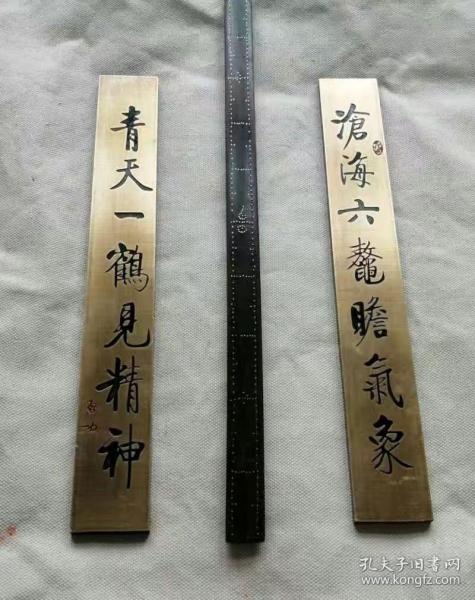 滄海六鼇瞻氣象
青天一鶴見精神
启功
孔夫子旧书网
www.kongfz.com